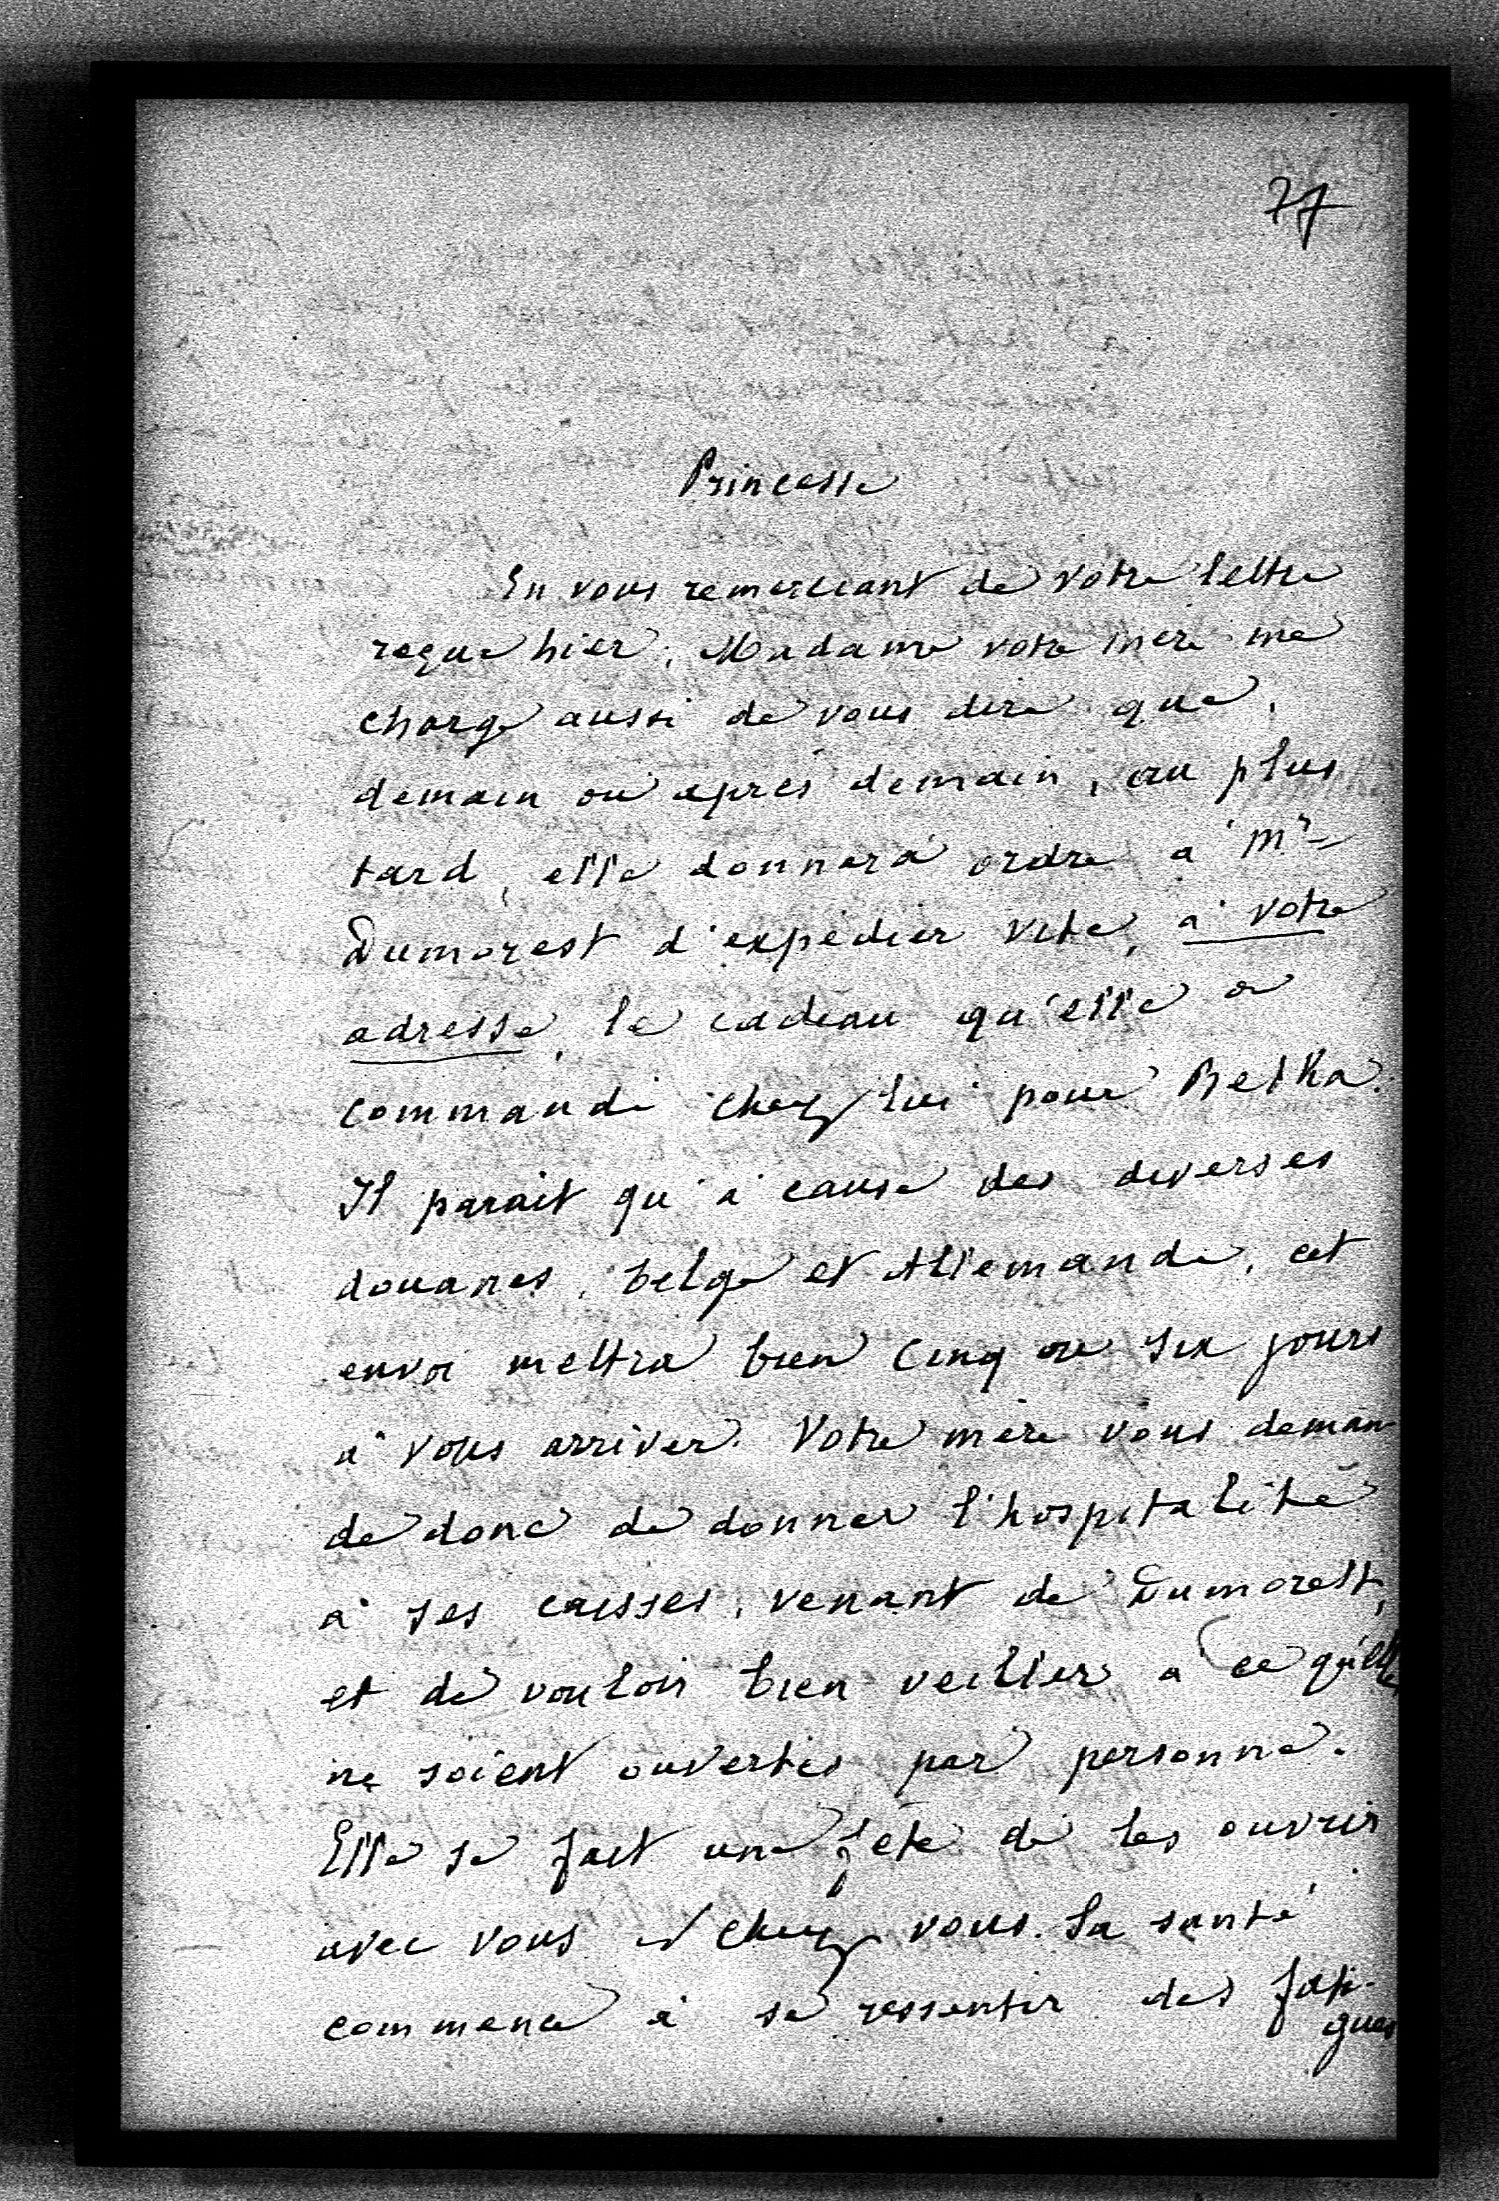 77
Princesse
En vous remerciant de votre lettre
reçue hier, Madame votre mère me
charge aussi de vous dire que,
demain ou après demain, au plus
tard, elle donnera ordre à Mr
Dumorest d'expédier vite, à votre
adresse, le cadeau qu'elle a
commandé chez lui pour Betka.
Il parait qu'à cause des diverses
douanes, belge et Allemande, cet
envoi mettra bien cinq ou six jours
à vous arriver. Votre mère vous deman
de donc de donner l'hospitalité
à ses caisses, venant de Dumorest,
et de vouloir bien veiller à ce qu'elles
ne soient ouvertes par personne.
Elle se fait une fête de les ouvrir
avec vous et chez vous. Sa santé
commence à se ressentir des fati-
gues